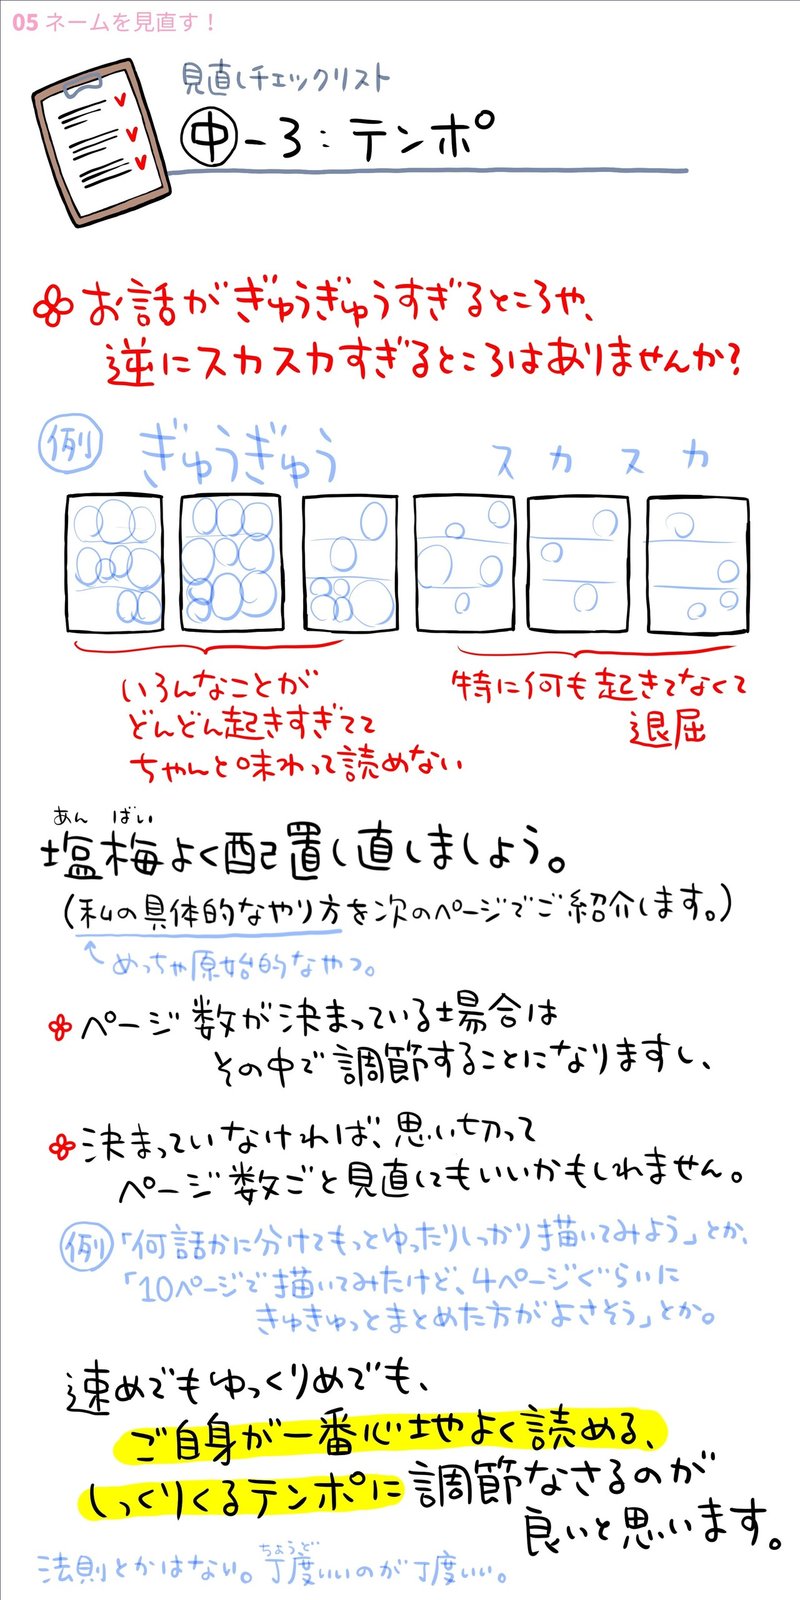 05 ネームを見直す！
見直しチェックリスト
中-3：テンポ
お話がぎゅうぎゅうすぎるところや、
逆にスカスカすぎるところはありませんか？
例 ぎゅうぎゅう スカスカ
いろんなことが
どんどん起きすぎてて
ちゃんと味わって読めない
特に何も起きてなくて
退屈
あんばい
塩梅よく配置し直しましょう。
(私の具体的なやり方を次のページでご紹介します。)
めっちゃ原始的なやつ。
ページ数が決まっている場合は
その中で調節することになりますし、
決まっていなければ、思い切って
ページ数ごと見直してもいいかもしれません。
例「何話かに分けてもっとゆったりしっかり描いてみよう」とか、
「10ページで描いてみたけど、4ページぐらいに
きゅきゅっとまとめた方がよさそう」とか。
速めでもゆっくりめでも、
ご自身が一番心地よく読める、
しっくりくるテンポに調節なさるのが
良いと思います。
ちょうど
法則とかはない。丁度いいのが丁度いい。